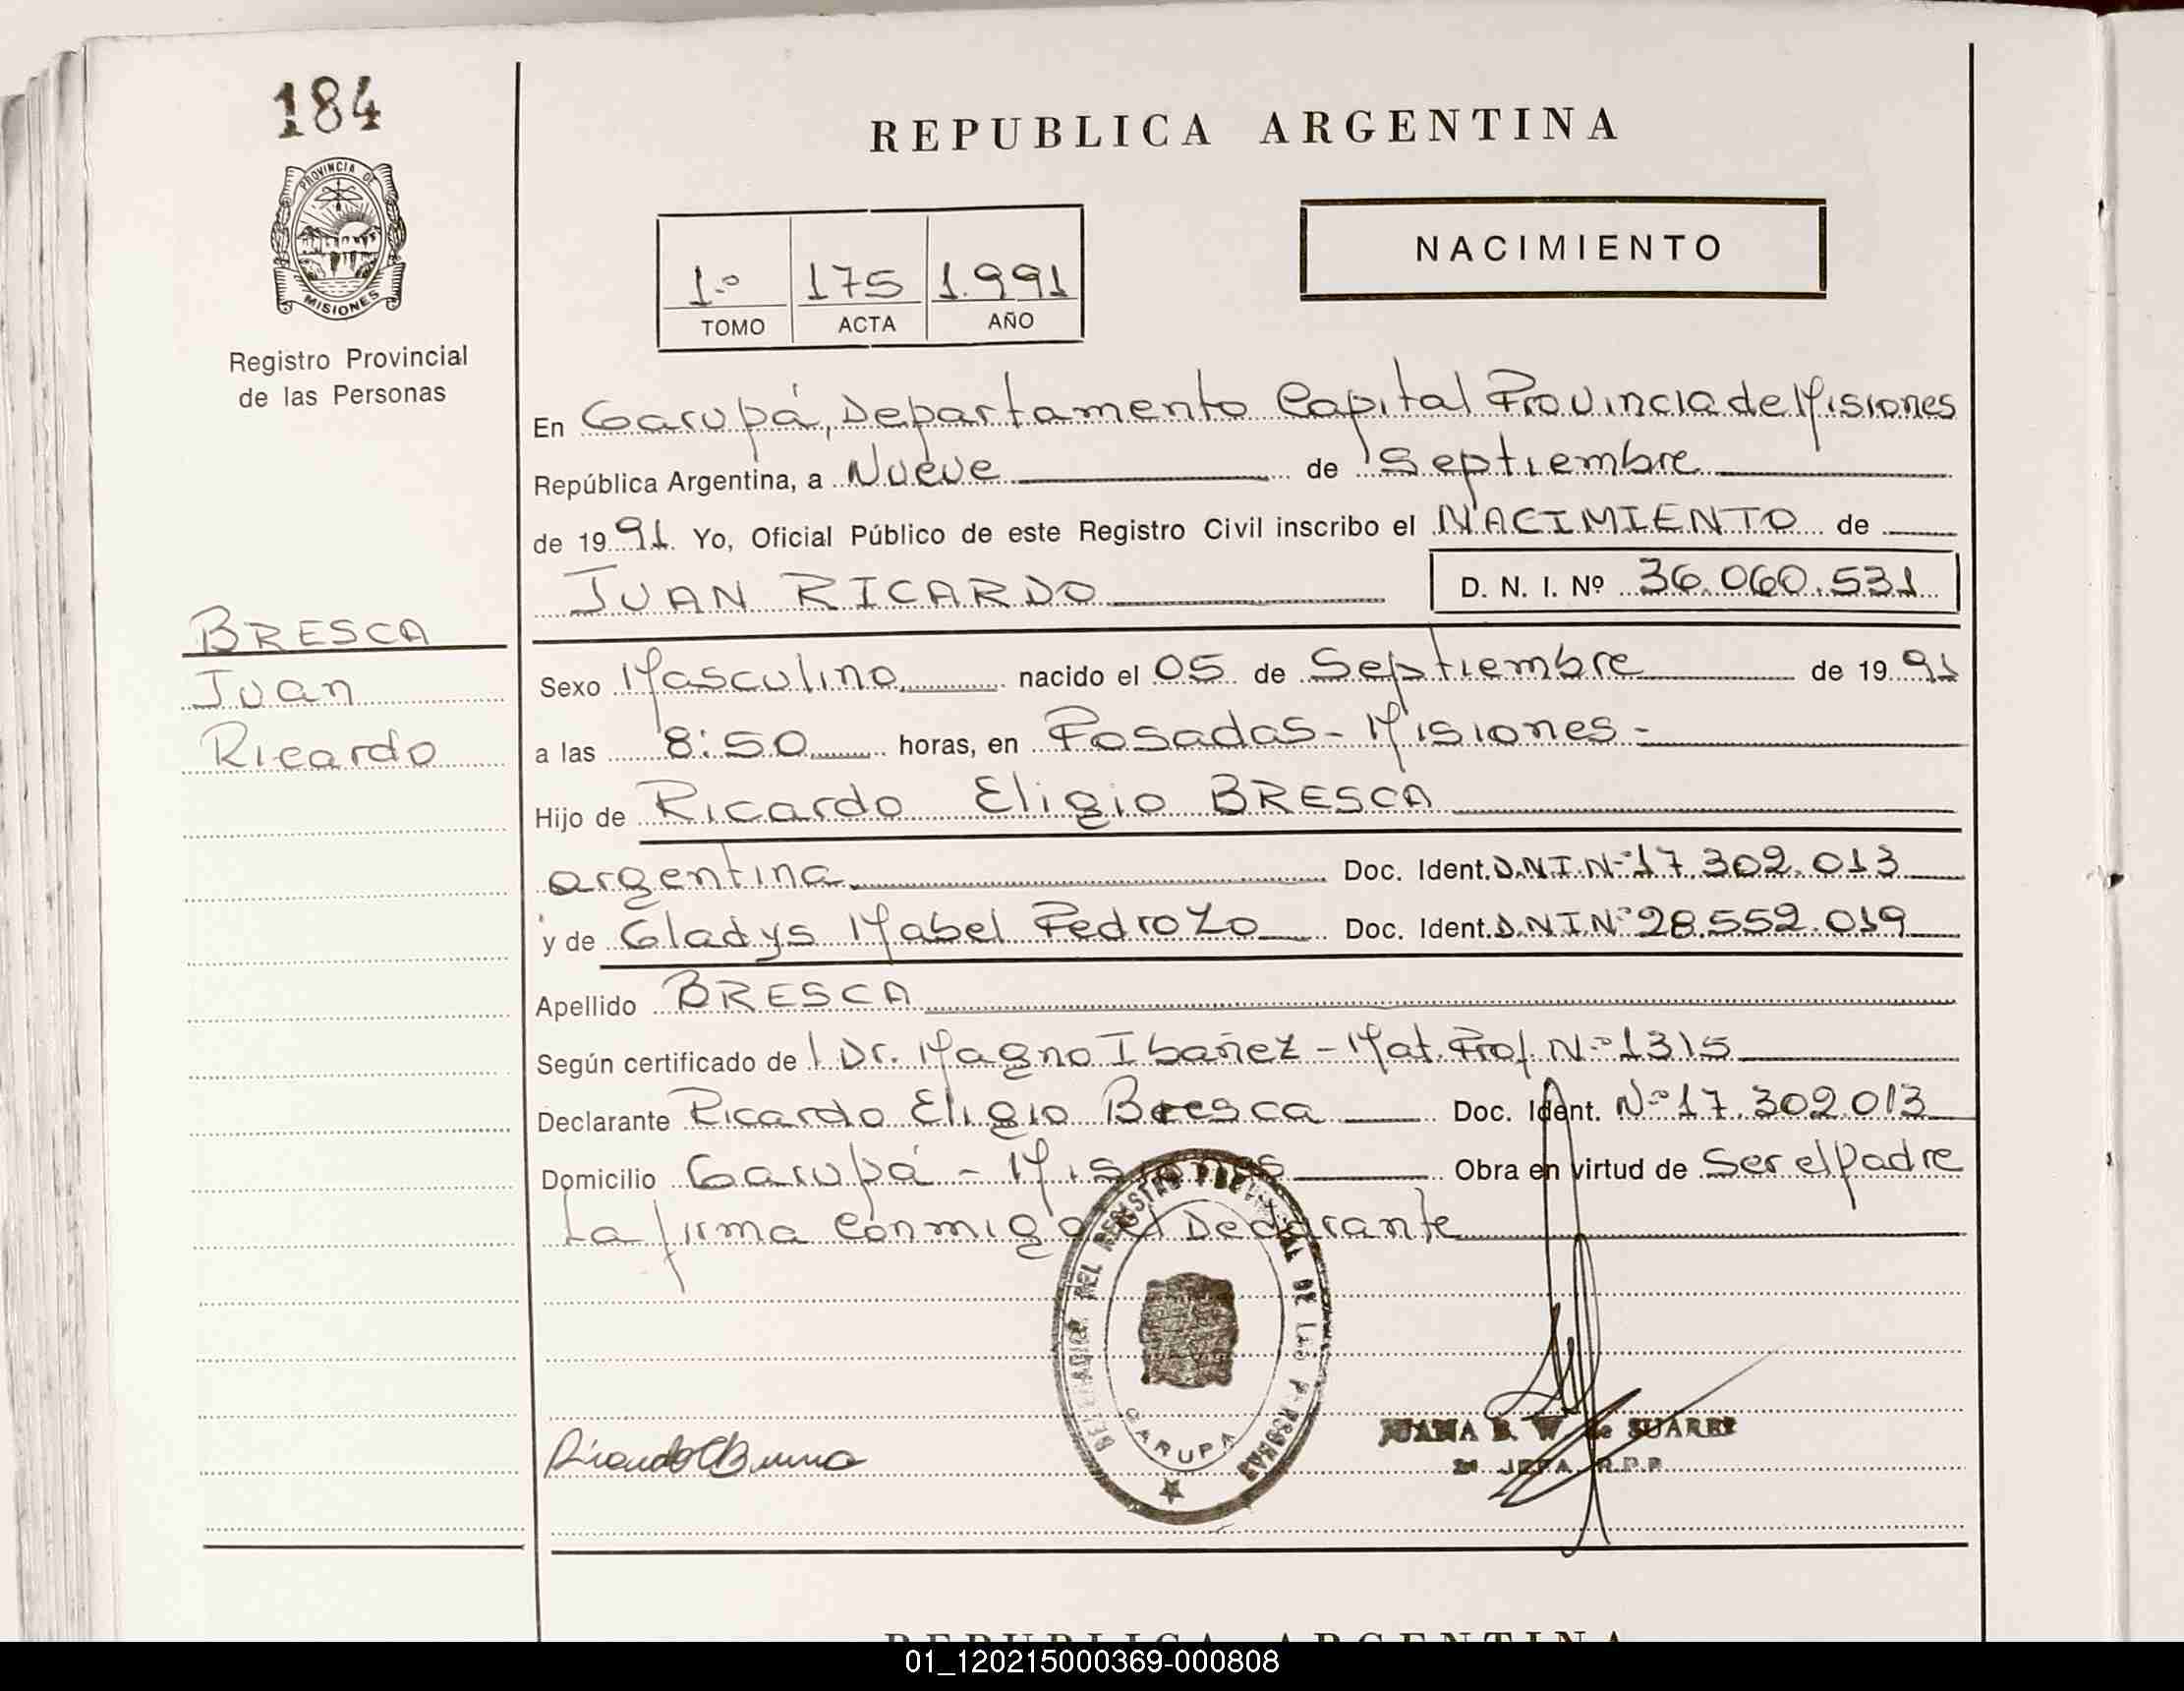 184
PROVINCIA DE
MISIONES
Registro Provincial
de las Personas
REPUBLICA ARGENTINA
1.º 175 1.991
TOMO ACTA AÑO
NACIMIENTO
En Garupá, Departamento Capital Provincia de Misiones
República Argentina, a Nueve de Septiembre
de 1991 Yo, Oficial Público de este Registro Civil inscribo el NACIMIENTO de
JUAN RICARDO D. N. I. Nº 36.060.531
BRESCA
Juan
Ricardo
Sexo Masculino nacido el 05 de Septiembre de 1991
a las 8:50 horas, en Posadas - Misiones -
Hijo de Ricardo Eligio BRESCA
argentina Doc. Ident. D.N.I.Nº 17.302.013
y de Gladys Mabel Pedrozo Doc. Ident. D.N.I Nº 28.552.019
Apellido BRESCA
Según certificado de Dr. Magno Ibañez - Mat. Prof. Nº 1315
Declarante Ricardo Eligio Bresca Doc. Ident. Nº 17.302.013
Domicilio Garupá - Misiones Obra en virtud de Ser el Padre
La firma conmigo el Declarante
DEL REGISTRO DE LAS PERSONAS
GARUPA
JUANA B. W. de SUAREZ
JEFA R.P.P.
REPUBLICA ARGENTINA
01_120215000369-000808